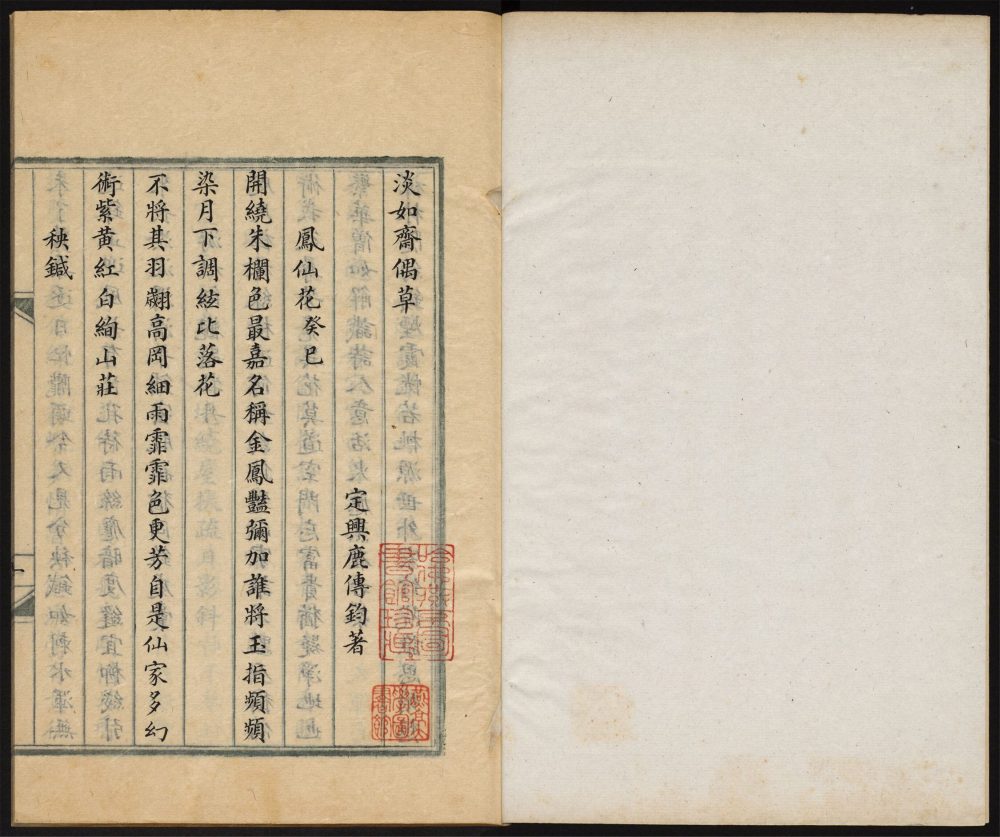 淡如齋偶草
定興鹿傳鈞著
鳳仙花癸巳
開繞朱欄色最嘉名稱金鳳豔彌加誰將玉指頻頻
染月下調絃比落花
不將其羽翽高岡細雨霏霏色更芳自是仙家多幻
術紫黃紅白絢山莊
秧鍼